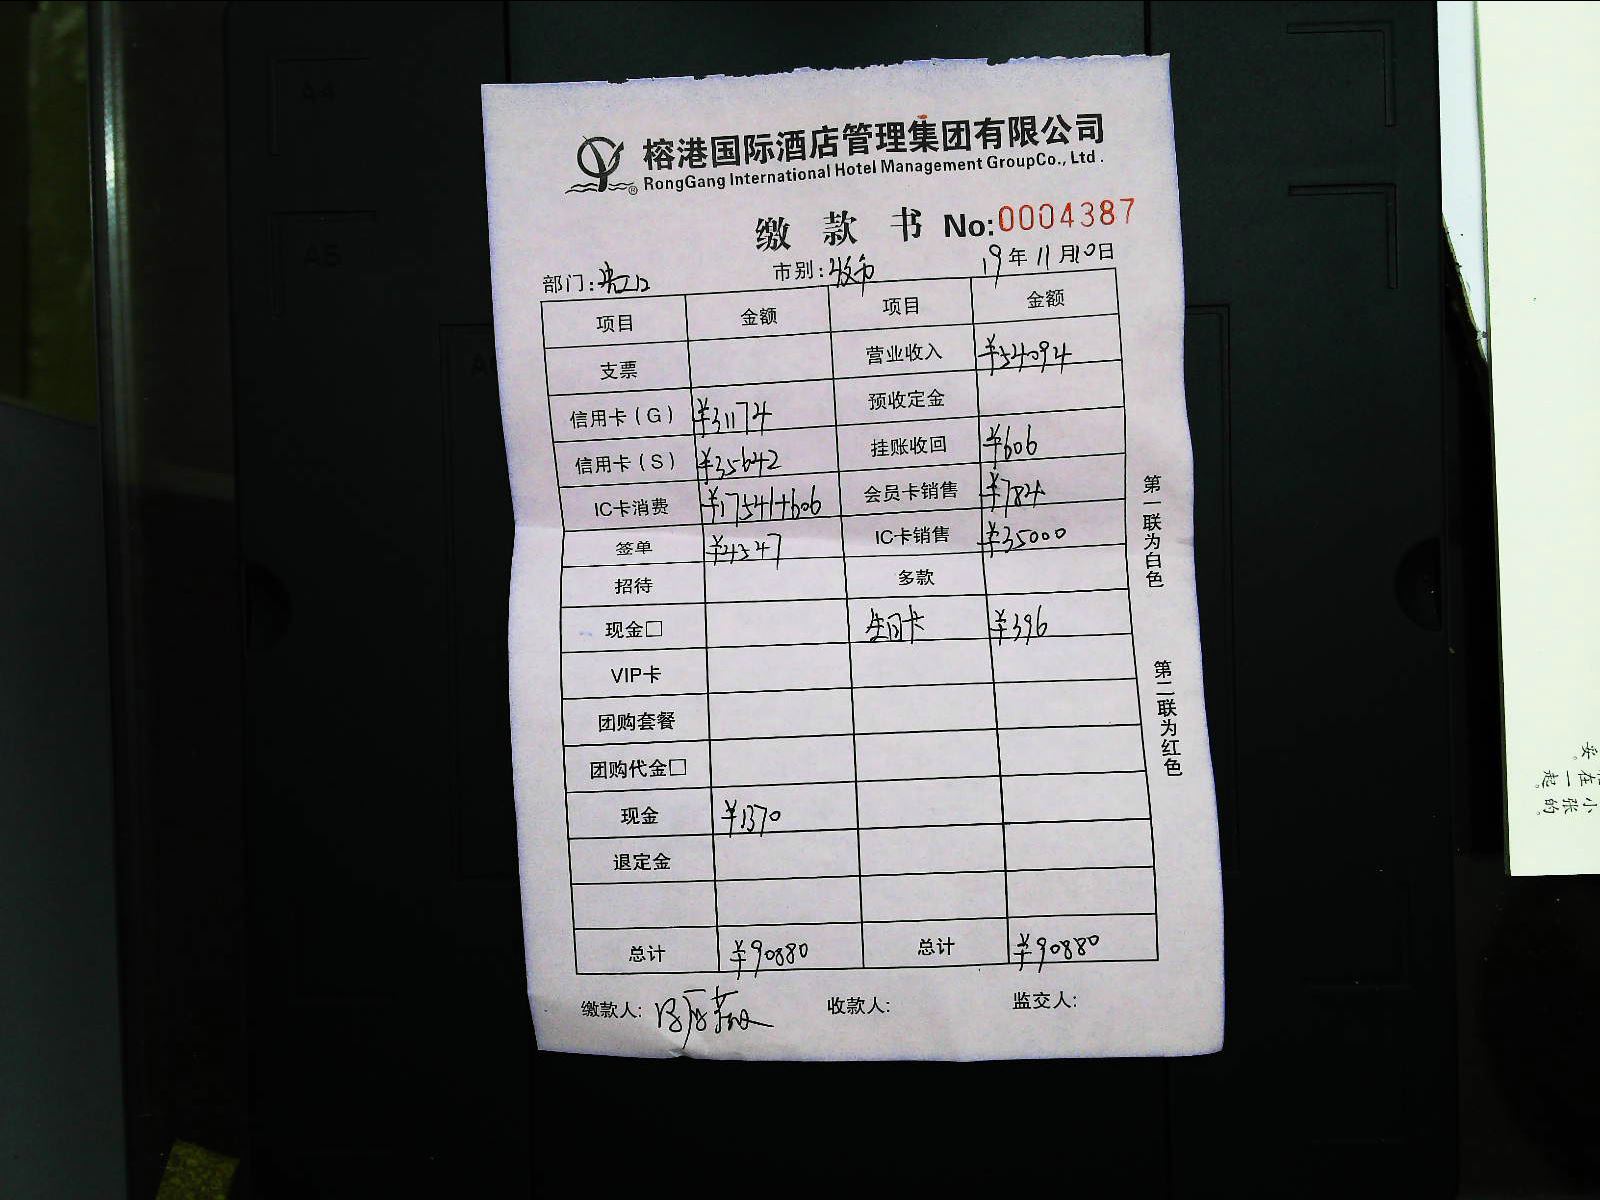 榕港国际酒店管理集团有限公司
RongGang International Hotel Management GroupCo., Ltd.
缴款书 No:0004387
部门: 市别:收市 19年11月10日
项目 金额 项目 金额
支票 营业收入 ¥54094
信用卡(G) ¥31174 预收定金
信用卡(S) ¥35642 挂账收回 ¥606
IC卡消费 ¥17541+606 会员卡销售 ¥784
签单 ¥4547 IC卡销售 ¥35000
招待 多款
现金□ 生日卡 ¥396
VIP卡
团购套餐
团购代金□
现金 ¥1370
退定金
总计 ¥90880 总计 ¥90880
缴款人: 收款人: 监交人:
第一联为白色
第二联为红色
A4
A5
妥。
在一起。
小张的